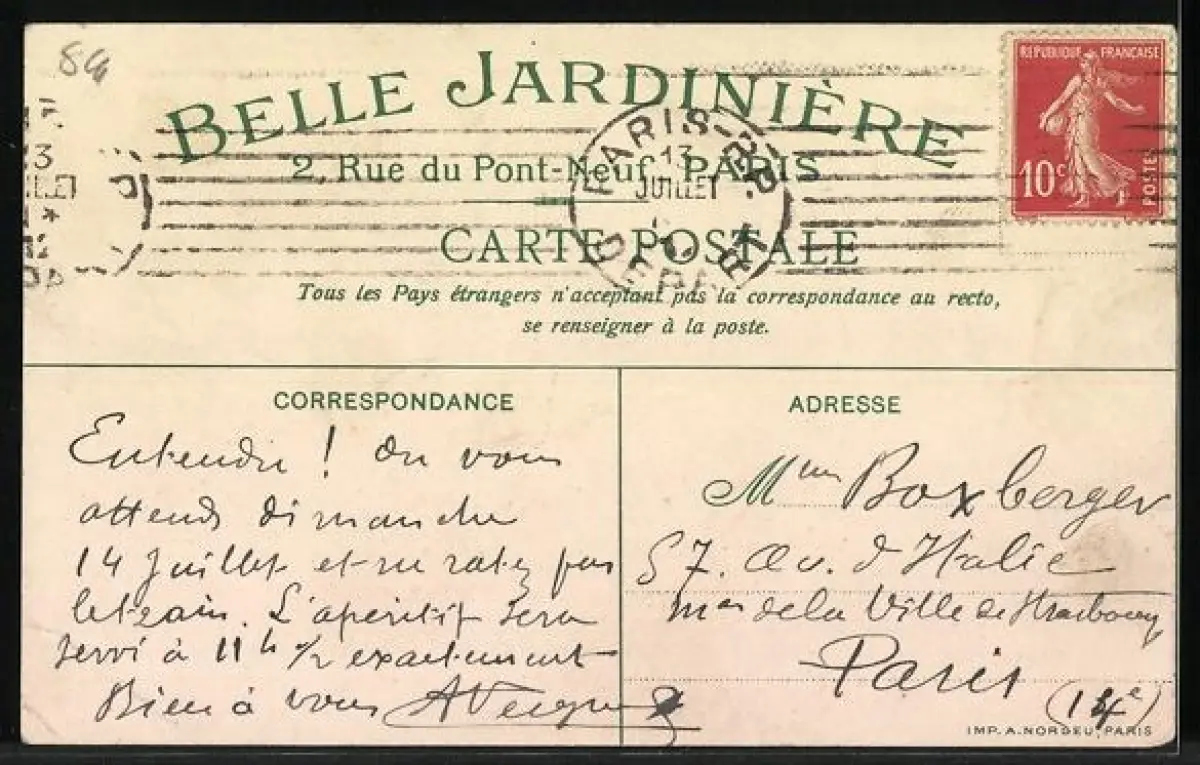 84
BELLE JARDINIÈRE
2, Rue du Pont-Neuf, PARIS
PARIS
13
JUILLET
DEPART
REPUBLIQUE FRANÇAISE
10c
POSTES
CARTE POSTALE
Tous les Pays étrangers n'acceptant pas la correspondance au recto,
se renseigner à la poste.
CORRESPONDANCE
Entendu ! On vous
attend dimanche
14 Juillet et ne ratez pas
le train. L'apéritif sera
servi à 11h 1/2 exactement
Bien à vous
ADRESSE
Mme Boxberger
57. Av. d'Italie
mon de la Ville de Strasbourg
Paris
(14e)
IMP. A. NORGEU, PARIS